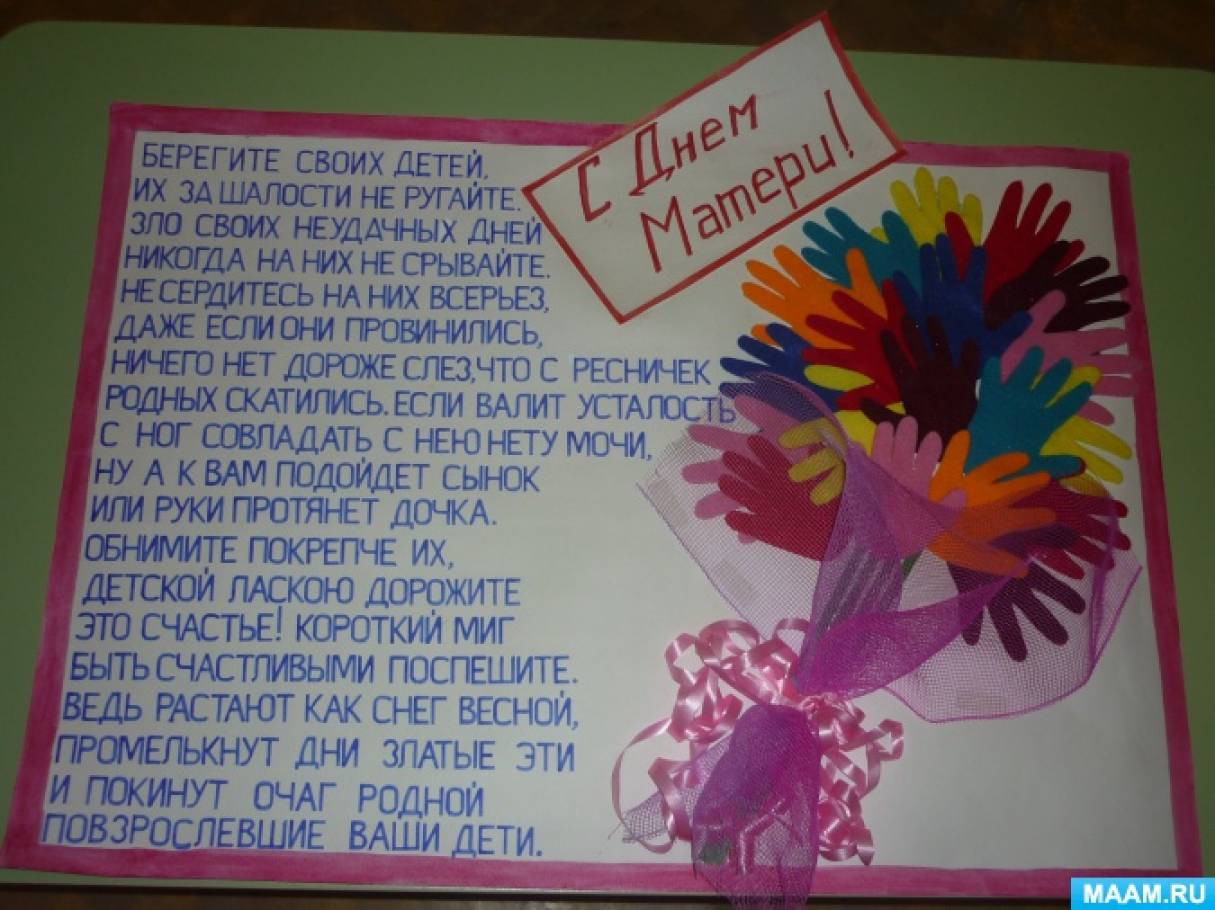 С Днем
Матери!
БЕРЕГИТЕ СВОИХ ДЕТЕЙ,
ИХ ЗА ШАЛОСТИ НЕ РУГАЙТЕ.
ЗЛО СВОИХ НЕУДАЧНЫХ ДНЕЙ
НИКОГДА НА НИХ НЕ СРЫВАЙТЕ.
НЕ СЕРДИТЕСЬ НА НИХ ВСЕРЬЕЗ,
ДАЖЕ ЕСЛИ ОНИ ПРОВИНИЛИСЬ,
НИЧЕГО НЕТ ДОРОЖЕ СЛЕЗ,ЧТО С РЕСНИЧЕК
РОДНЫХ СКАТИЛИСЬ. ЕСЛИ ВАЛИТ УСТАЛОСТЬ
С НОГ СОВЛАДАТЬ С НЕЮ НЕТУ МОЧИ,
НУ А К ВАМ ПОДОЙДЕТ СЫНОК
ИЛИ РУКИ ПРОТЯНЕТ ДОЧКА.
ОБНИМИТЕ ПОКРЕПЧЕ ИХ,
ДЕТСКОЙ ЛАСКОЮ ДОРОЖИТЕ
ЭТО СЧАСТЬЕ! КОРОТКИЙ МИГ
БЫТЬ СЧАСТЛИВЫМИ ПОСПЕШИТЕ.
ВЕДЬ РАСТАЮТ КАК СНЕГ ВЕСНОЙ,
ПРОМЕЛЬКНУТ ДНИ ЗЛАТЫЕ ЭТИ
И ПОКИНУТ ОЧАГ РОДНОЙ
ПОВЗРОСЛЕВШИЕ ВАШИ ДЕТИ.
MAAM.RU